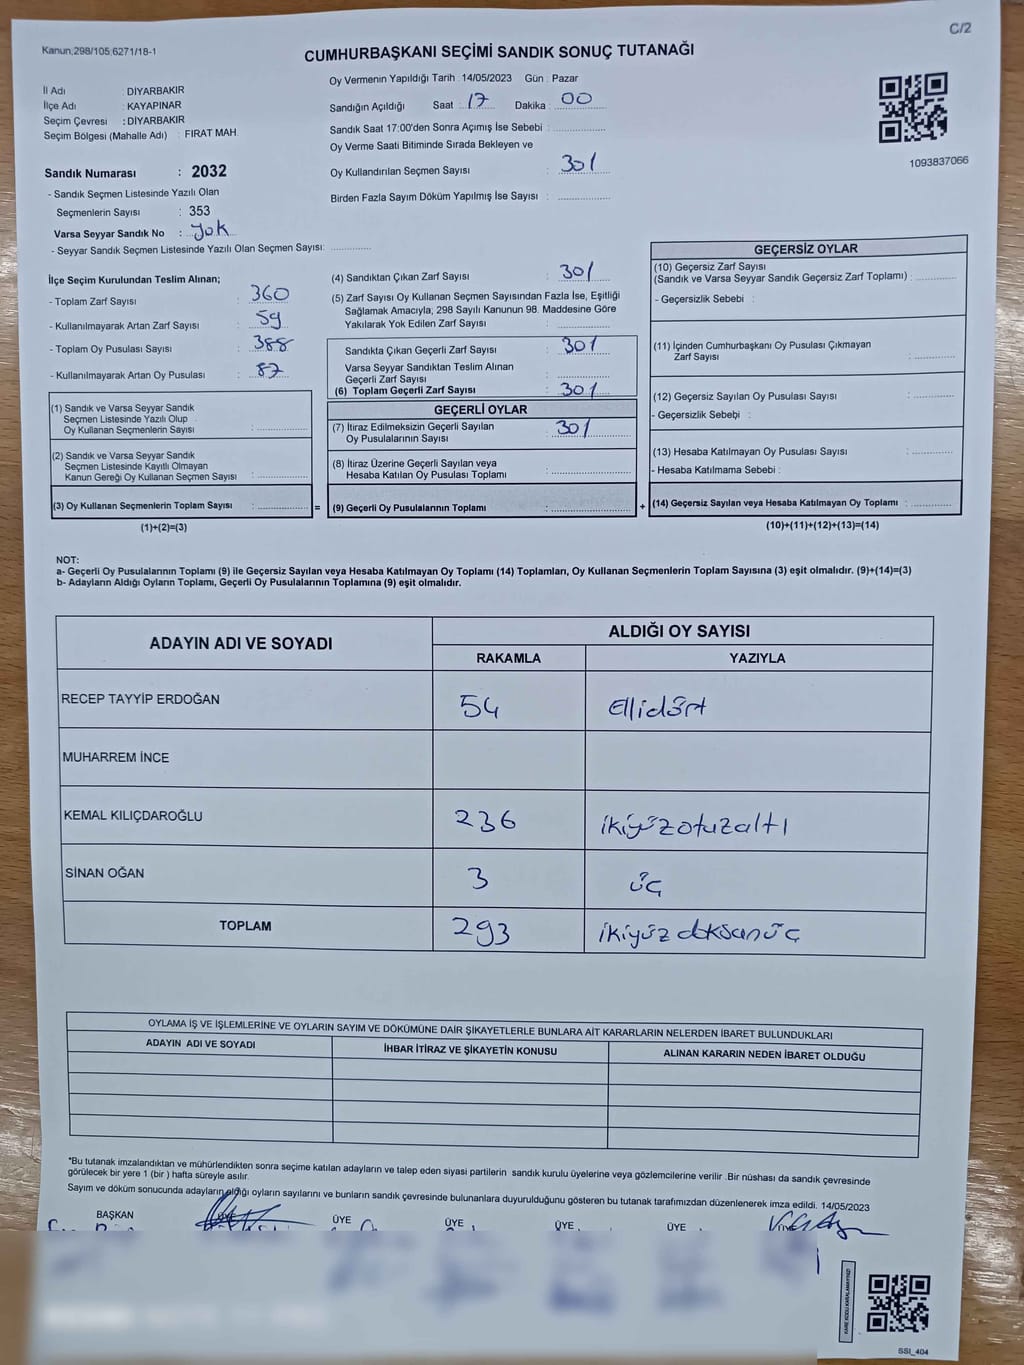 C/2
Kanun;298/105;6271/18-1
CUMHURBAŞKANI SEÇİMİ SANDIK SONUÇ TUTANAĞI
İl Adı : DİYARBAKIR
İlçe Adı : KAYAPINAR
Seçim Çevresi : DİYARBAKIR
Seçim Bölgesi (Mahalle Adı) : FIRAT MAH.
Oy Vermenin Yapıldığı Tarih : 14/05/2023 Gün : Pazar
Sandığın Açıldığı Saat : 17 Dakika : 00
Sandık Saat 17:00'den Sonra Açımış İse Sebebi :
Oy Verme Saati Bitiminde Sırada Bekleyen ve
Oy Kullandırılan Seçmen Sayısı : 301
Birden Fazla Sayım Döküm Yapılmış İse Sayısı :
1093837066
Sandık Numarası : 2032
- Sandık Seçmen Listesinde Yazılı Olan
Seçmenlerin Sayısı : 353
Varsa Seyyar Sandık No : yok
- Seyyar Sandık Seçmen Listesinde Yazılı Olan Seçmen Sayısı:
İlçe Seçim Kurulundan Teslim Alınan;
- Toplam Zarf Sayısı : 360
- Kullanılmayarak Artan Zarf Sayısı : 59
- Toplam Oy Pusulası Sayısı : 388
- Kullanılmayarak Artan Oy Pusulası : 87
(1) Sandık ve Varsa Seyyar Sandık
Seçmen Listesinde Yazılı Olup
Oy Kullanan Seçmenlerin Sayısı :
(2) Sandık ve Varsa Seyyar Sandık
Seçmen Listesinde Kayıtlı Olmayan
Kanun Gereği Oy Kullanan Seçmen Sayısı :
(3) Oy Kullanan Seçmenlerin Toplam Sayısı :
(1)+(2)=(3)
(4) Sandıktan Çıkan Zarf Sayısı : 301
(5) Zarf Sayısı Oy Kullanan Seçmen Sayısından Fazla İse, Eşitliği
Sağlamak Amacıyla; 298 Sayılı Kanunun 98. Maddesine Göre
Yakılarak Yok Edilen Zarf Sayısı :
Sandıkta Çıkan Geçerli Zarf Sayısı : 301
Varsa Seyyar Sandıktan Teslim Alınan
Geçerli Zarf Sayısı :
(6) Toplam Geçerli Zarf Sayısı : 301
GEÇERLİ OYLAR
(7) İtiraz Edilmeksizin Geçerli Sayılan
Oy Pusulalarının Sayısı : 301
(8) İtiraz Üzerine Geçerli Sayılan veya
Hesaba Katılan Oy Pusulası Toplamı :
= (9) Geçerli Oy Pusulalarının Toplamı :
GEÇERSİZ OYLAR
(10) Geçersiz Zarf Sayısı
(Sandık ve Varsa Seyyar Sandık Geçersiz Zarf Toplamı) :
- Geçersizlik Sebebi :
(11) İçinden Cumhurbaşkanı Oy Pusulası Çıkmayan
Zarf Sayısı :
(12) Geçersiz Sayılan Oy Pusulası Sayısı :
- Geçersizlik Sebebi :
(13) Hesaba Katılmayan Oy Pusulası Sayısı :
- Hesaba Katılmama Sebebi :
+ (14) Geçersiz Sayılan veya Hesaba Katılmayan Oy Toplamı :
(10)+(11)+(12)+(13)=(14)
NOT:
a- Geçerli Oy Pusulalarının Toplamı (9) ile Geçersiz Sayılan veya Hesaba Katılmayan Oy Toplamı (14) Toplamları, Oy Kullanan Seçmenlerin Toplam Sayısına (3) eşit olmalıdır. (9)+(14)=(3)
b- Adayların Aldığı Oyların Toplamı, Geçerli Oy Pusulalarının Toplamına (9) eşit olmalıdır.
ADAYIN ADI VE SOYADI ALDIĞI OY SAYISI
RAKAMLA YAZIYLA
RECEP TAYYİP ERDOĞAN 54 Ellidört
MUHARREM İNCE
KEMAL KILIÇDAROĞLU 236 ikiyüzotuzaltı
SİNAN OĞAN 3 üç
TOPLAM 293 ikiyüz doksanüç
OYLAMA İŞ VE İŞLEMLERİNE VE OYLARIN SAYIM VE DÖKÜMÜNE DAİR ŞİKAYETLERLE BUNLARA AİT KARARLARIN NELERDEN İBARET BULUNDUKLARI
ADAYIN ADI VE SOYADI İHBAR İTİRAZ VE ŞİKAYETİN KONUSU ALINAN KARARIN NEDEN İBARET OLDUĞU
*Bu tutanak imzalandıktan ve mühürlendikten sonra seçime katılan adayların ve talep eden siyasi partilerin sandık kurulu üyelerine veya gözlemcilerine verilir. Bir nüshası da sandık çevresinde
görülecek bir yere 1 (bir) hafta süreyle asılır.
Sayım ve döküm sonucunda adayların aldığı oyların sayılarını ve bunların sandık çevresinde bulunanlara duyurulduğunu gösteren bu tutanak tarafımızdan düzenlenerek imza edildi. 14/05/2023
BAŞKAN ÜYE ÜYE ÜYE ÜYE
SSI_404